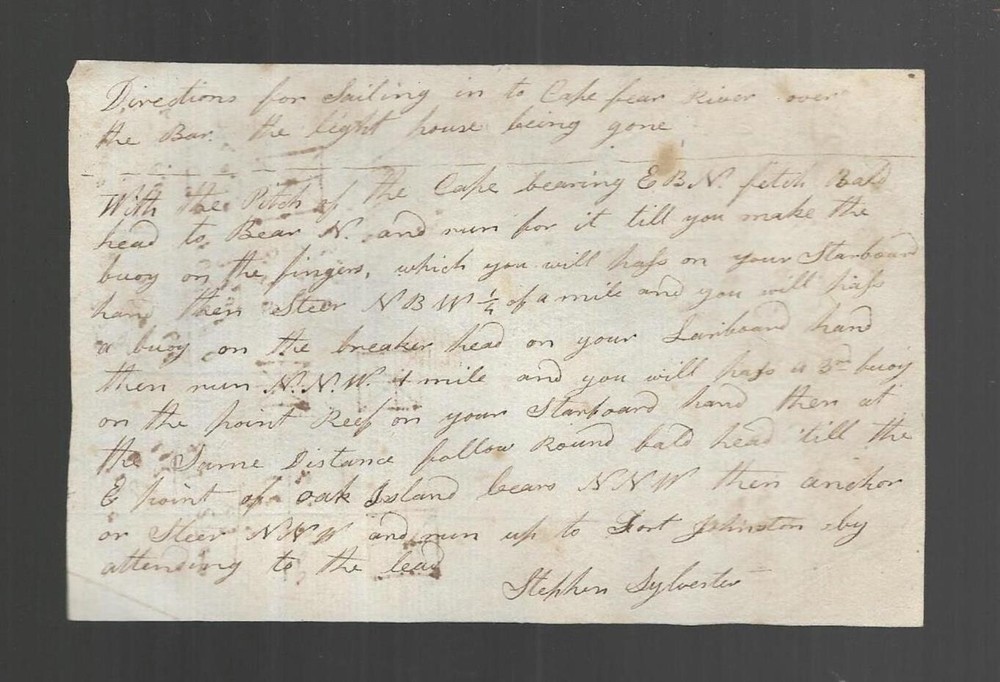 Directions for Sailing in to Cape fear River over
the Bar. the light house being gone
With the Pitch of the Cape bearing E B N. fetch Bald
head to Bear N. and run for it till you make the
buoy on the fingers, which you will pass on your Starboard
hand then Steer N B W 1/4 of a mile and you will pass
a buoy on the breaker head on your Larboard hand
then run N. N. W. mile and you will pass a 3rd buoy
on the point Reef on your Starboard hand then at
the Same Distance follow Round bald head 'till the
E point of oak Island bears N N W then anchor
or Steer N N W and run up to Fort Johnston by
attending to the lead
Stephen Sylvester